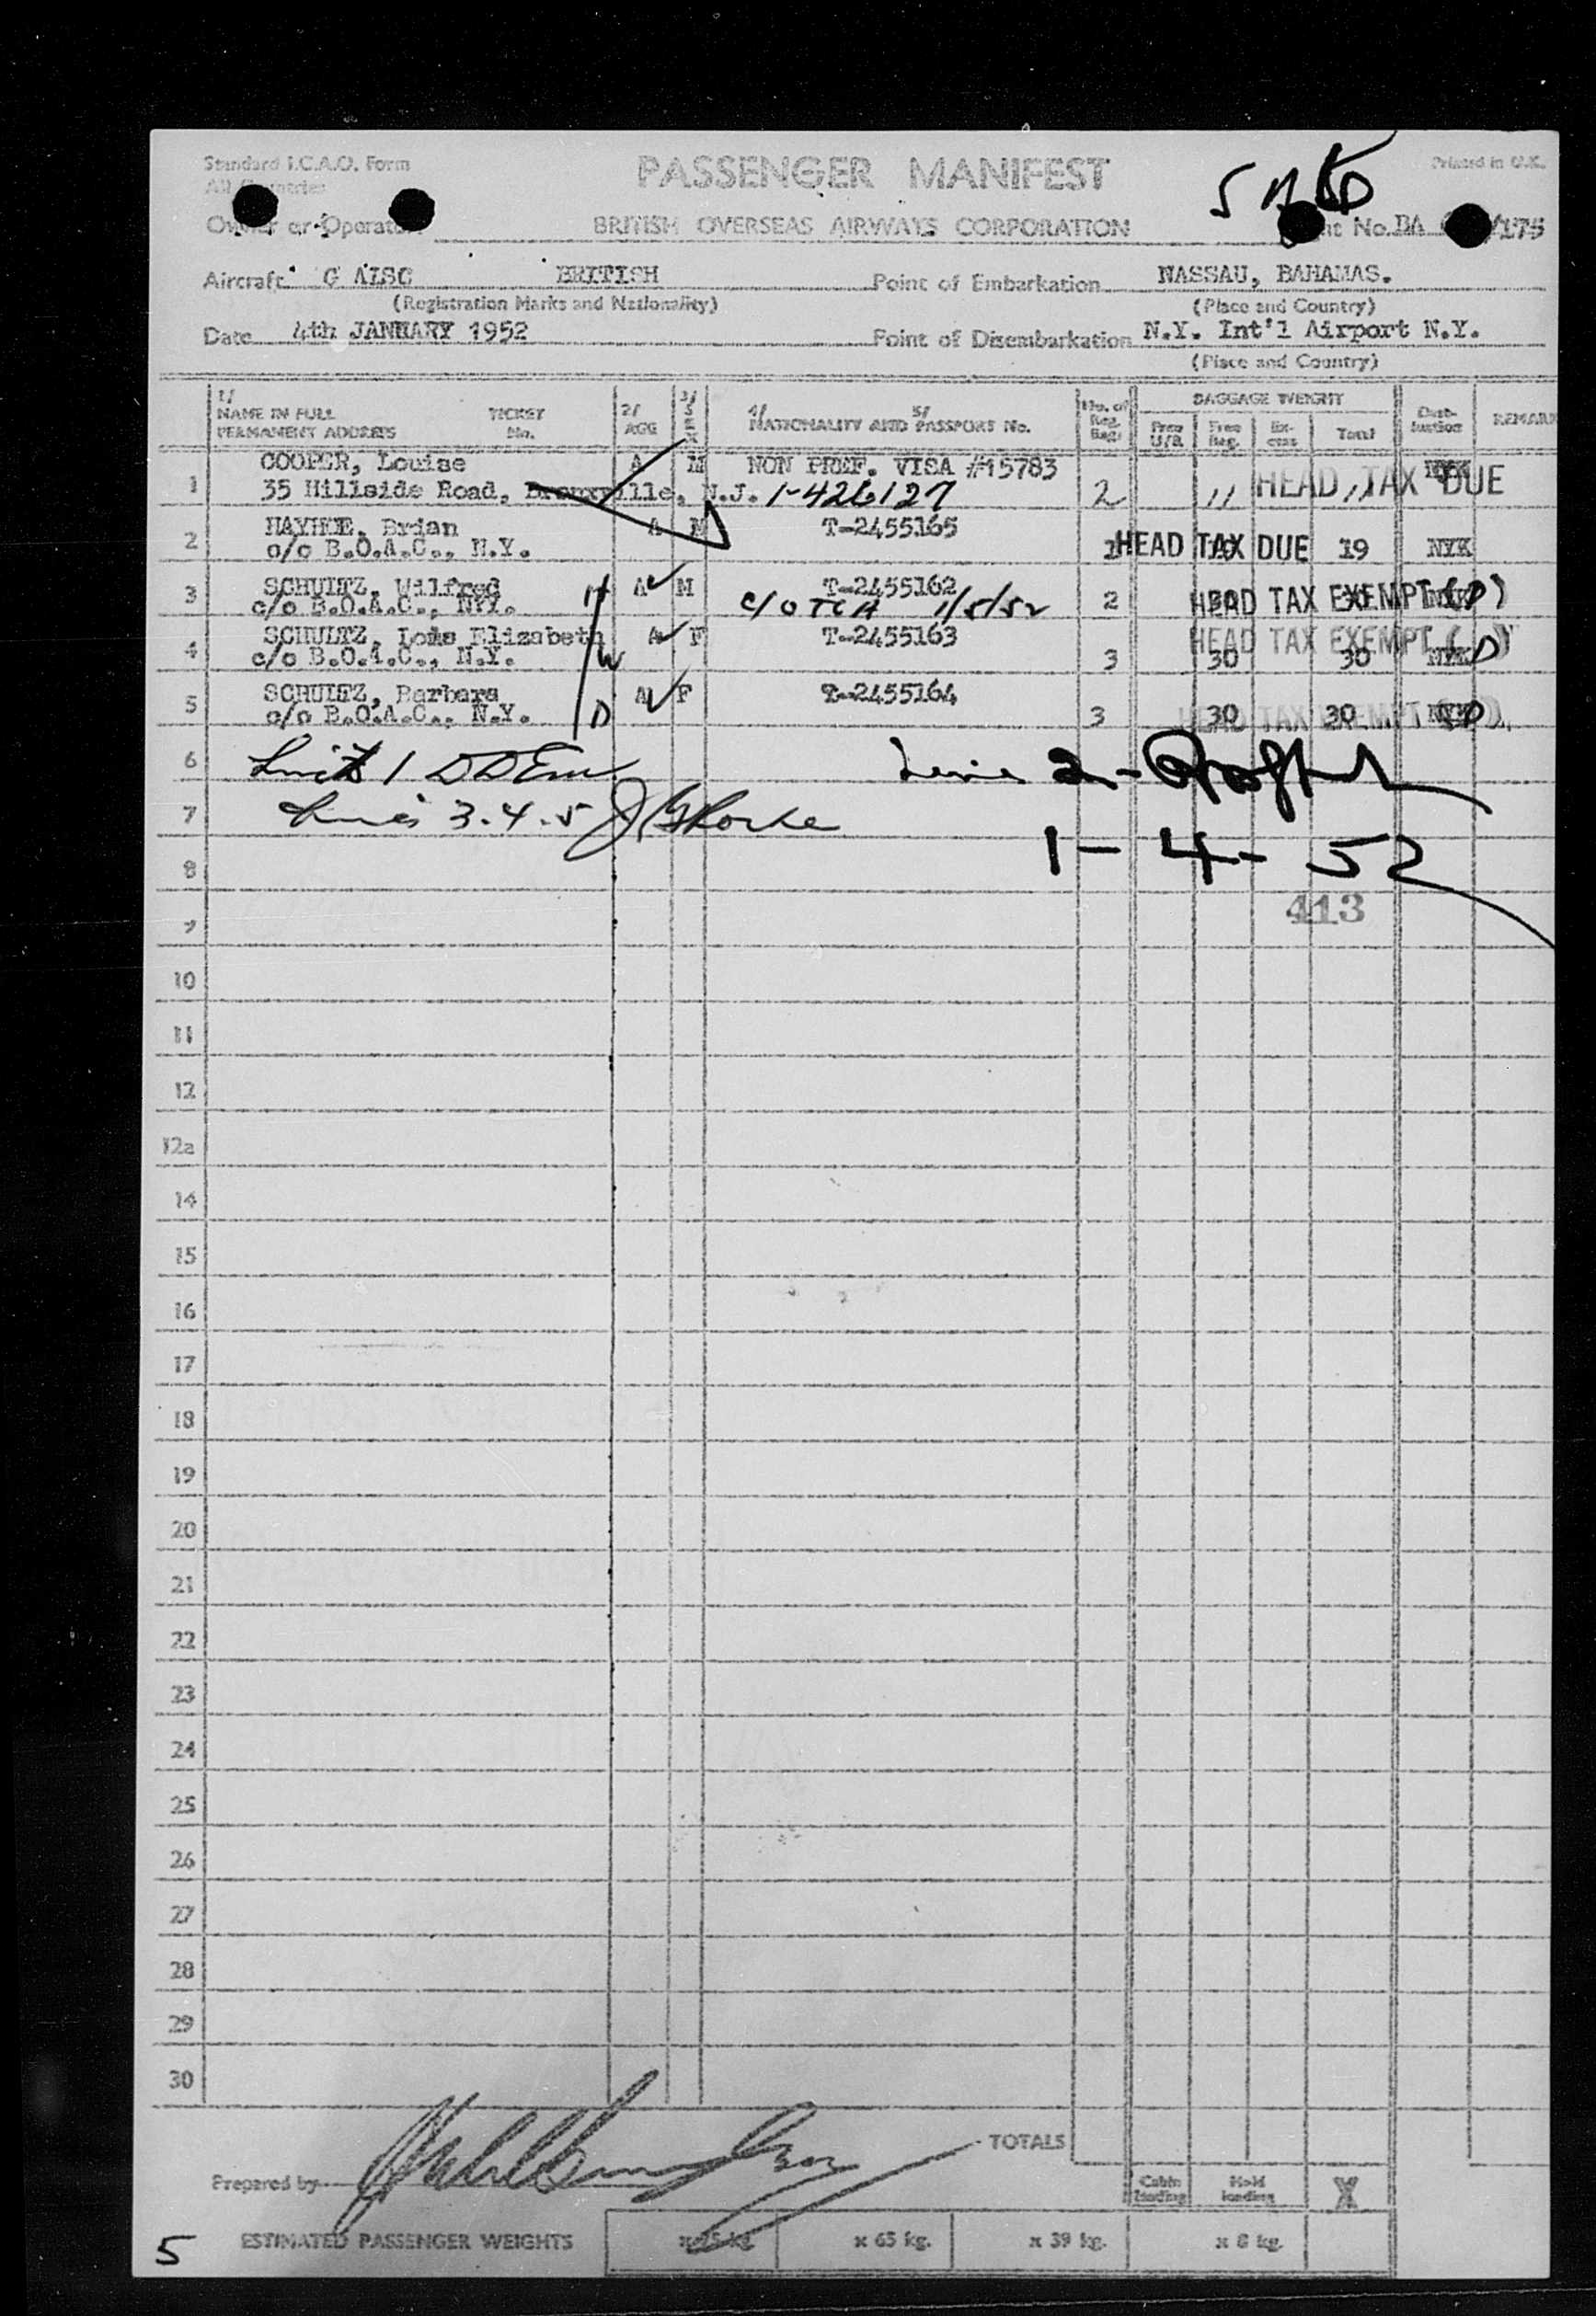 Standard I.C.A.O. Form
PASSENGER MANIFEST
Printed in U.K.
All Countries
Owner or Operator BRITISH OVERSEAS AIRWAYS CORPORATION No. BA /175
Aircraft G ALSC BRITISH Point of Embarkation NASSAU, BAHAMAS.
(Registration Marks and Nationality) (Place and Country)
Date 4th JANUARY 1952 Point of Disembarkation N.Y. Int'l Airport N.Y.
(Place and Country)
1/ NAME IN FULL TICKET 2/ AGE 3/ SEX 4/ NATIONALITY AND 5/ PASSPORT No. No. of Reg. Bags BAGGAGE WEIGHT
PERMANENT ADDRESS No. Free U/R Free Reg. Ex-cess Total Dest-ination REMARK
1 COOPER, Louise A M NON PREF. VISA #15783
35 Hillside Road, Bronxville, N.J. 1-426127 2 " HEAD TAX DUE " NYK
2 HAYHOE, Brian A M T-2455165
c/o B.O.A.C., N.Y. 1 HEAD TAX DUE 19 NYK
3 SCHULTZ, Wilfred H A M T-2455162
c/o B.O.A.C., NY. c/o TCA 1/5/52 2 HEAD TAX EXEMPT (D)
4 SCHULTZ, Lois Elizabeth A F T-2455163 HEAD TAX EXEMPT ( )
c/o B.O.A.C., N.Y. W 3 30 30 NYK D
5 SCHULTZ, Barbara A F T-2455164
c/o B.O.A.C., N.Y. D 3 30 HEAD TAX EXEMPT 30 NYK (D)
6 1 Line 2 -
7 Lines 3.4.5
8 1-4-52
413
9
10
11
12
12a
14
15
16
17
18
19
20
21
22
23
24
25
26
27
28
29
30
TOTALS
Prepared by Cabin loading Hold loading X
5 ESTIMATED PASSENGER WEIGHTS x 75 kg x 65 kg. x 39 kg. x 8 kg.